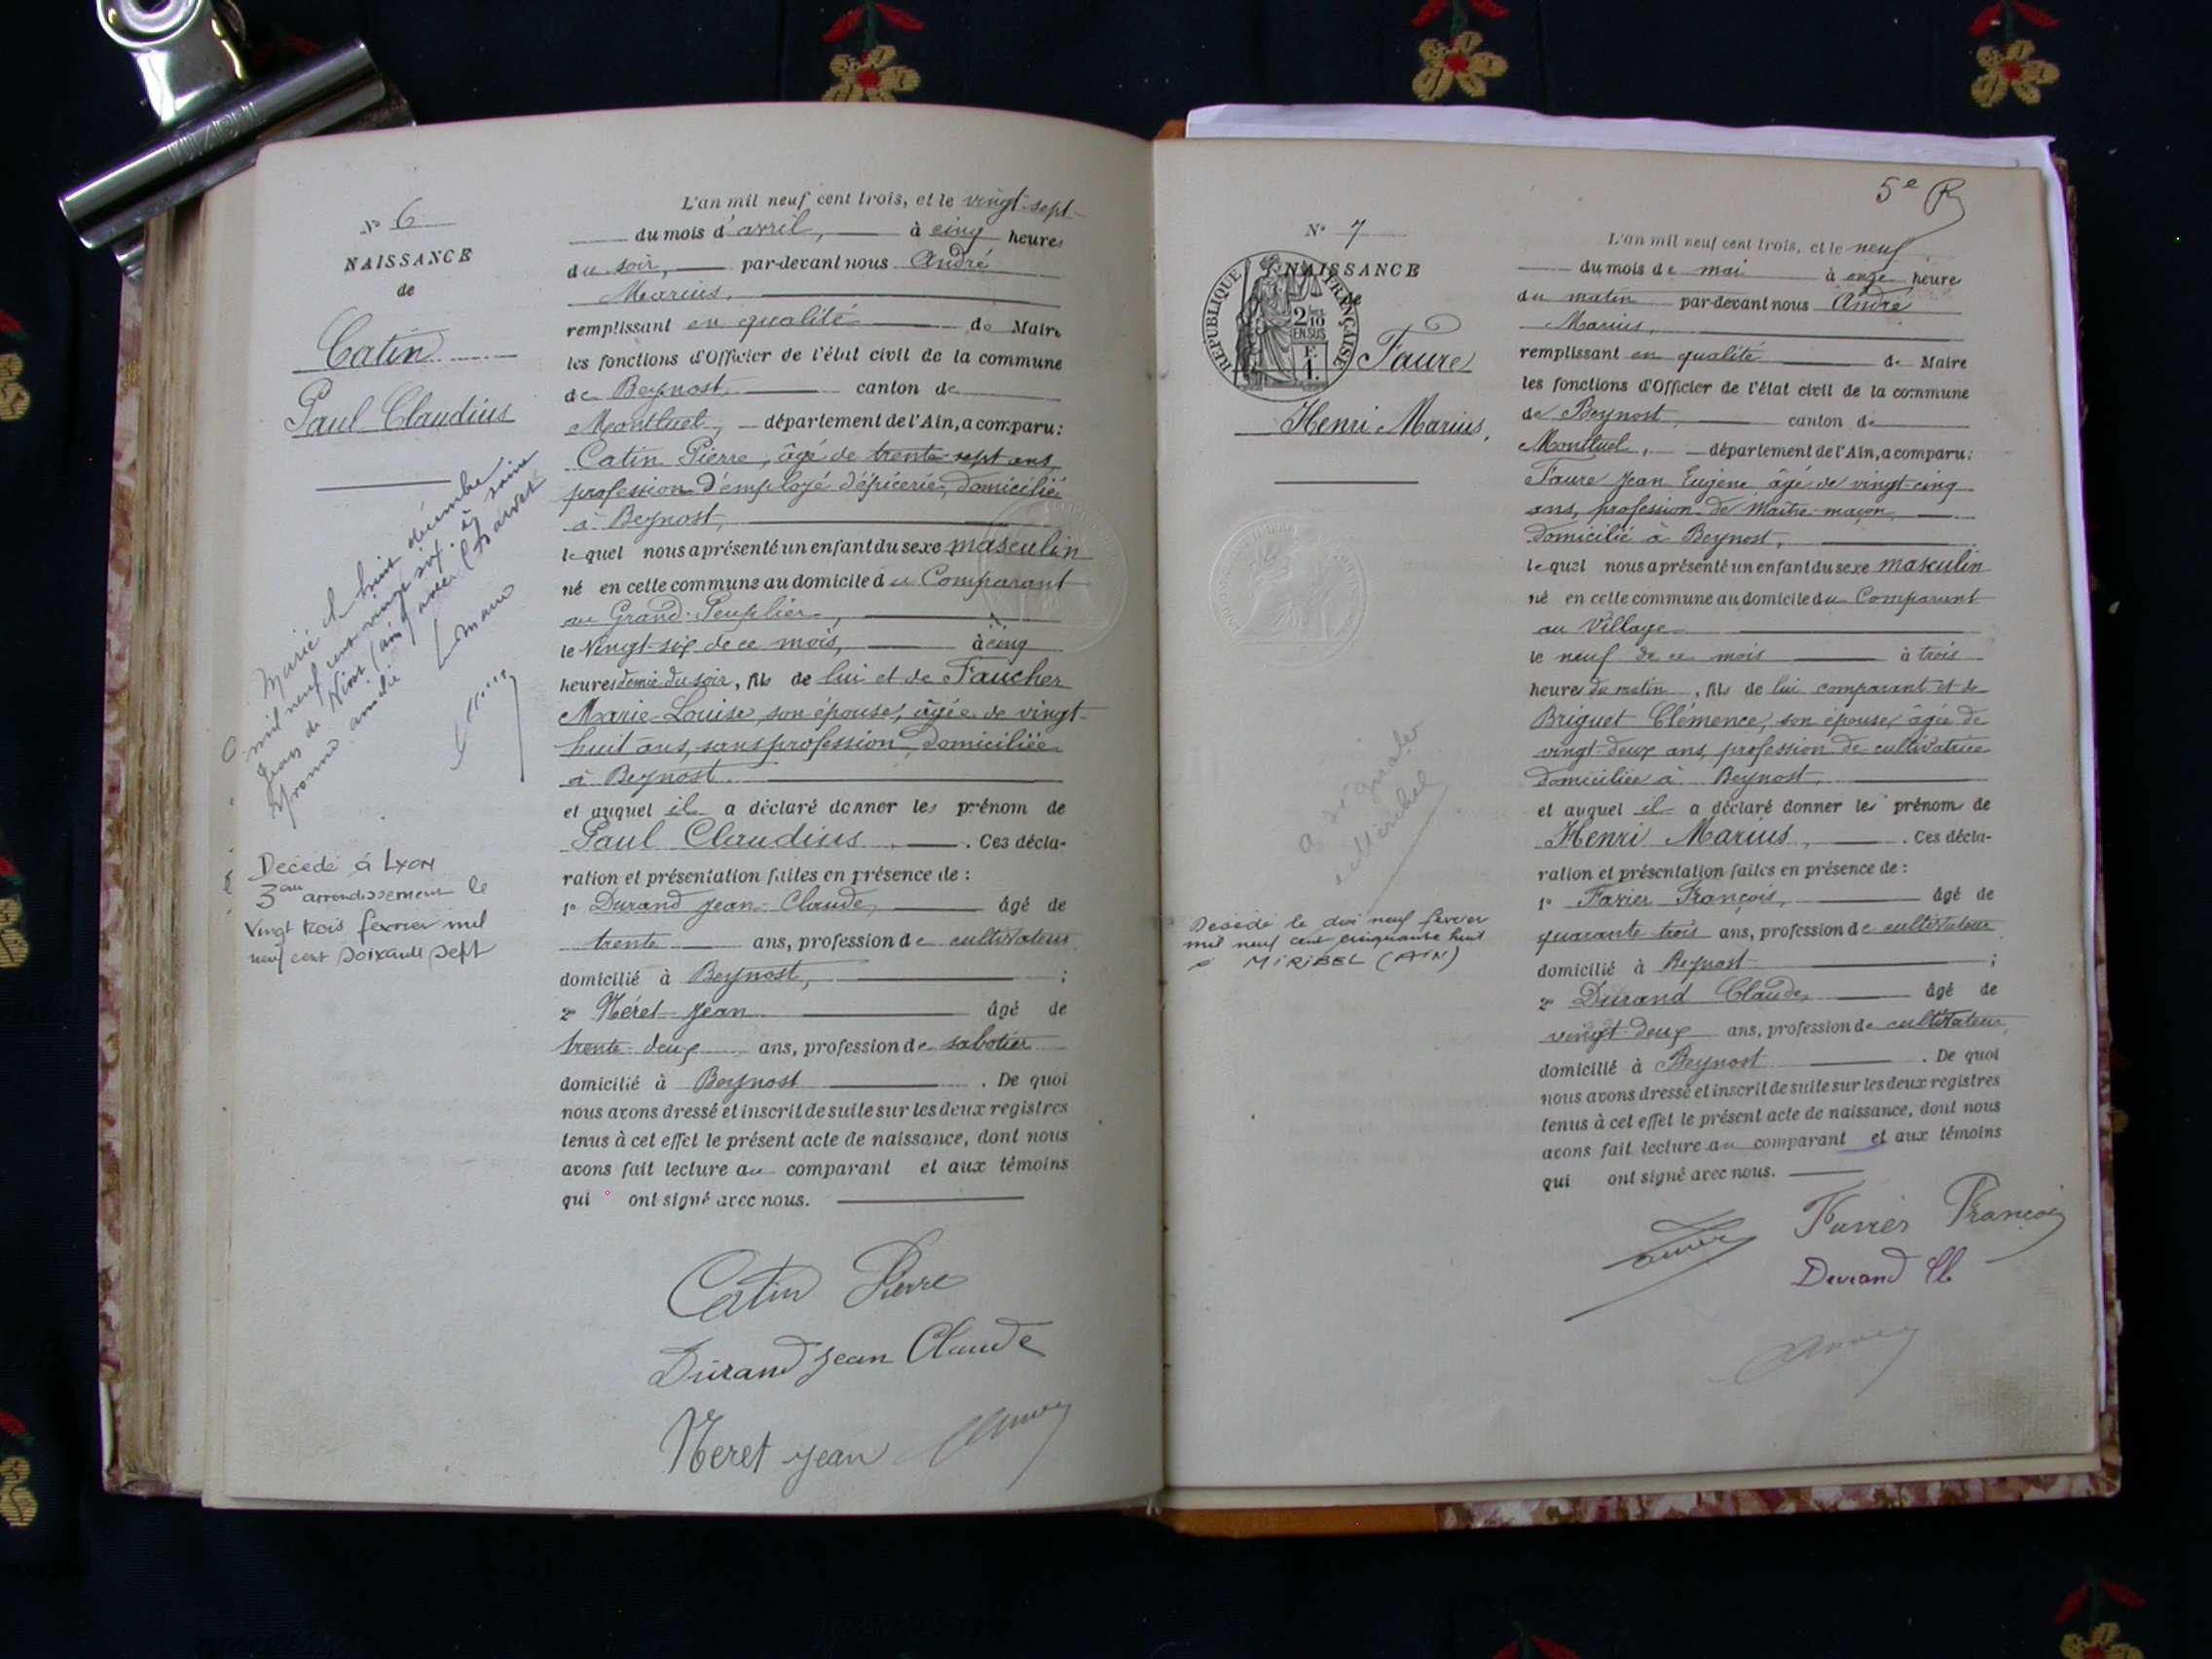 N° 6
NAISSANCE
de
Catin
Paul Claudius
Marié le huit décembre
mil neuf cent vingt six à Saint
Jean de Niost (ain) avec Charvet
Yvonne Amélie
Le maire
Décédé à Lyon
3eme arrondissement le
vingt trois fevrier mil
neuf cent soixante sept
L'an mil neuf cent trois, et le vingt-sept
du mois d'avril, à cinq heures
du soir, par-devant nous André
Marius,
remplissant en qualité de Maire
les fonctions d'Officier de l'état civil de la commune
de Beynost, canton de
Montluel, département de l'Ain, a comparu:
Catin Pierre, âgé de trente-sept ans,
profession d'employé d'épicerie, domicilié
à Beynost,
lequel nous a présenté un enfant du sexe masculin
né en cette commune au domicile du Comparant
au Grand-Peuplier,
le Vingt-six de ce mois, à cinq
heures demie du soir, fils de lui et de Faucher
Marie-Louise, son épouse, âgée de vingt-
huit ans, sans profession, domiciliée
à Beynost.
et auquel il a déclaré donner les prénom de
Paul Claudius. Ces décla-
ration et présentation faites en présence de :
1° Durand Jean-Claude, âgé de
trente ans, profession de cultivateur
domicilié à Beynost, ;
2° Néret Jean âgé de
trente-deux ans, profession de sabotier
domicilié à Beynost. De quoi
nous avons dressé et inscrit de suite sur les deux registres
tenus à cet effet le présent acte de naissance, dont nous
avons fait lecture au comparant et aux témoins
qui ont signé avec nous.
Catin Pierre
Durand Jean Claude
Neret Jean
5e R
N° 7
NAISSANCE
de
RÉPUBLIQUE FRANÇAISE
2/10
EN SUS
F.
1.
Faure
Henri Marius,
a signaler
a Miribel
Décédé le dix neuf fevrier
mil neuf cent cinquante huit
à MIRIBEL (AIN)
L'an mil neuf cent trois, et le neuf
du mois de mai à onze heure
du matin par-devant nous André
Marius,
remplissant en qualité de Maire
les fonctions d'Officier de l'état civil de la commune
de Beynost, canton de
Montluel, département de l'Ain, a comparu:
Faure Jean Eugène âgé de vingt-cinq
ans, profession de Maître-maçon,
domicilié à Beynost,
lequel nous a présenté un enfant du sexe masculin
né en cette commune au domicile du Comparant
au Village
le neuf de ce mois à trois
heures du matin, fils de lui comparant et de
Briguet Clémence, son épouse, âgée de
vingt-deux ans, profession de cultivatrice
domiciliée à Beynost,
et auquel il a déclaré donner les prénoms de
Henri Marius, . Ces décla-
ration et présentation faites en présence de :
1° Favier François, âgé de
quarante-trois ans, profession de cultivateur
domicilié à Beynost ;
2° Durand Claude, âgé de
vingt-deux ans, profession de cultivateur,
domicilié à Beynost. De quoi
nous avons dressé et inscrit de suite sur les deux registres
tenus à cet effet le présent acte de naissance, dont nous
avons fait lecture au comparant et aux témoins
qui ont signé avec nous.
Favier François
Durand Cl